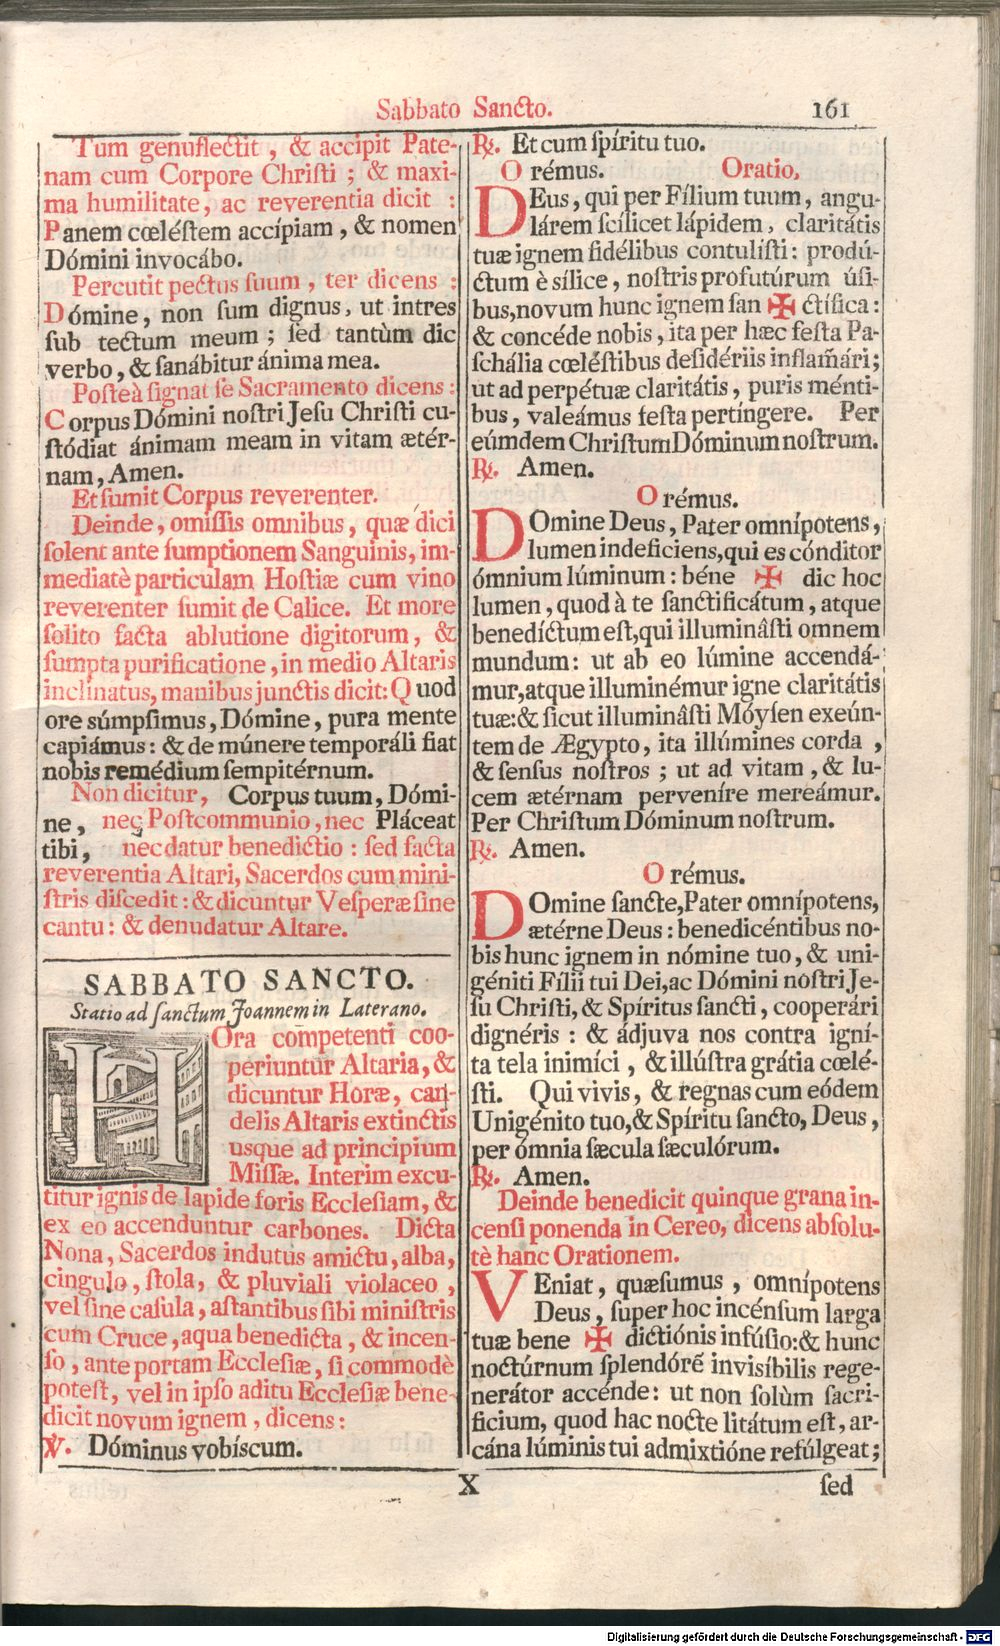 Sabbato Sancto. 161
Tum genuflectit, & accipit Pate-
nam cum Corpore Chriſti; & maxi-
ma humilitate, ac reverentia dicit:
Panem cœléſtem accípiam, & nomen
Dómini invocábo.
Percutit pectus ſuum, ter dicens:
Dómine, non ſum dignus, ut intres
ſub tectum meum; ſed tantùm dic
verbo, & ſanábitur ánima mea.
Poſteà ſignat ſe Sacramento dicens:
Corpus Dómini noſtri Jeſu Chriſti cu-
ſtódiat ánimam meam in vitam ætér-
nam, Amen.
Et ſumit Corpus reverenter.
Deinde, omiſſis omnibus, quæ dici
ſolent ante ſumptionem Sanguinis, im-
mediatè particulam Hoſtiæ cum vino
reverenter ſumit de Calice. Et more
ſolito facta ablutione digitorum, &
ſumpta purificatione, in medio Altaris
inclinatus, manibus junctis dicit: Quod
ore súmpſimus, Dómine, pura mente
capiámus: & de múnere temporáli fiat
nobis remédium ſempitérnum.
Non dicitur, Corpus tuum, Dómi-
ne, nec Poſtcommunio, nec Pláceat
tibi, nec datur benedictio: ſed facta
reverentia Altari, Sacerdos cum mini-
ſtris diſcedit: & dicuntur Veſperæ ſine
cantu: & denudatur Altare.
SABBATO SANCTO.
Statio ad ſanctum Joannem in Laterano.
HOra competenti coo-
periuntur Altaria, &
dicuntur Horæ, can-
delis Altaris extinctis
usque ad principium
Miſſæ. Interim excu-
titur ignis de lapide foris Eccleſiam, &
ex eo accenduntur carbones. Dicta
Nona, Sacerdos indutus amictu, alba,
cingulo, ſtola, & pluviali violaceo,
vel ſine caſula, aſtantibus ſibi miniſtris
cum Cruce, aqua benedicta, & incen-
ſo, ante portam Eccleſiæ, ſi commodè
poteſt, vel in ipſo aditu Eccleſiæ bene-
dicit novum ignem, dicens:
℣. Dóminus vobíscum.
℟. Et cum ſpíritu tuo.
Orémus. Oratio.
DEus, qui per Fílium tuum, angu-
lárem ſcílicet lápidem, claritátis
tuæ ignem fidélibus contulíſti: prodú-
ctum è sílice, noſtris profutúrum úſi-
bus, novum hunc ignem ſan ✠ ctífica:
& concéde nobis, ita per hæc feſta Pa-
ſchália cœléſtibus deſidériis inflam̃ári;
ut ad perpétuæ claritátis, puris ménti-
bus, valeámus feſta pertíngere. Per
eúmdem Chriſtum Dóminum noſtrum.
℟. Amen.
Orémus.
DOmine Deus, Pater omnípotens,
lumen indeficiens, qui es cónditor
ómnium lúminum: béne ✠ dic hoc
lumen, quod à te ſanctificátum, atque
benedíctum eſt, qui illuminâſti omnem
mundum: ut ab eo lúmine accendá-
mur, atque illuminémur igne claritátis
tuæ: & ſicut illuminâſti Móyſen exeún-
tem de Ægypto, ita illúmines corda,
& ſenſus noſtros; ut ad vitam, & lu-
cem ætérnam perveníre mereámur.
Per Chriſtum Dóminum noſtrum.
℟. Amen.
Orémus.
DOmine ſancte, Pater omnípotens,
ætérne Deus: benedicéntibus no-
bis hunc ignem in nómine tuo, & uni-
géniti Fílii tui Dei, ac Dómini noſtri Je-
ſu Chriſti, & Spíritus ſancti, cooperári
dignéris: & ádjuva nos contra igní-
ta tela inimíci, & illúſtra grátia cœlé-
ſti. Qui vivis, & regnas cum eódem
Unigénito tuo, & Spíritu ſancto, Deus,
per ómnia ſæcula ſæculórum.
℟. Amen.
Deinde benedicit quinque grana in-
cenſi ponenda in Cereo, dicens abſolu-
tè hanc Orationem.
VEniat, quæſumus, omnípotens
Deus, ſuper hoc incénſum larga
tuæ bene ✠ dictiónis infúſio: & hunc
noctúrnum ſplendórẽ inviſíbilis rege-
nerátor accénde: ut non ſolùm ſacri-
ficium, quod hac nocte litátum eſt, ar-
cána lúminis tui admixtióne refúlgeat;
X ſed
Digitalisierung gefördert durch die Deutsche Forschungsgemeinschaft - DFG